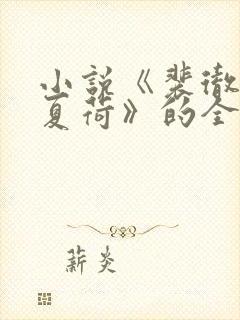 小说《裴徹
夏荷》的全
薪炎